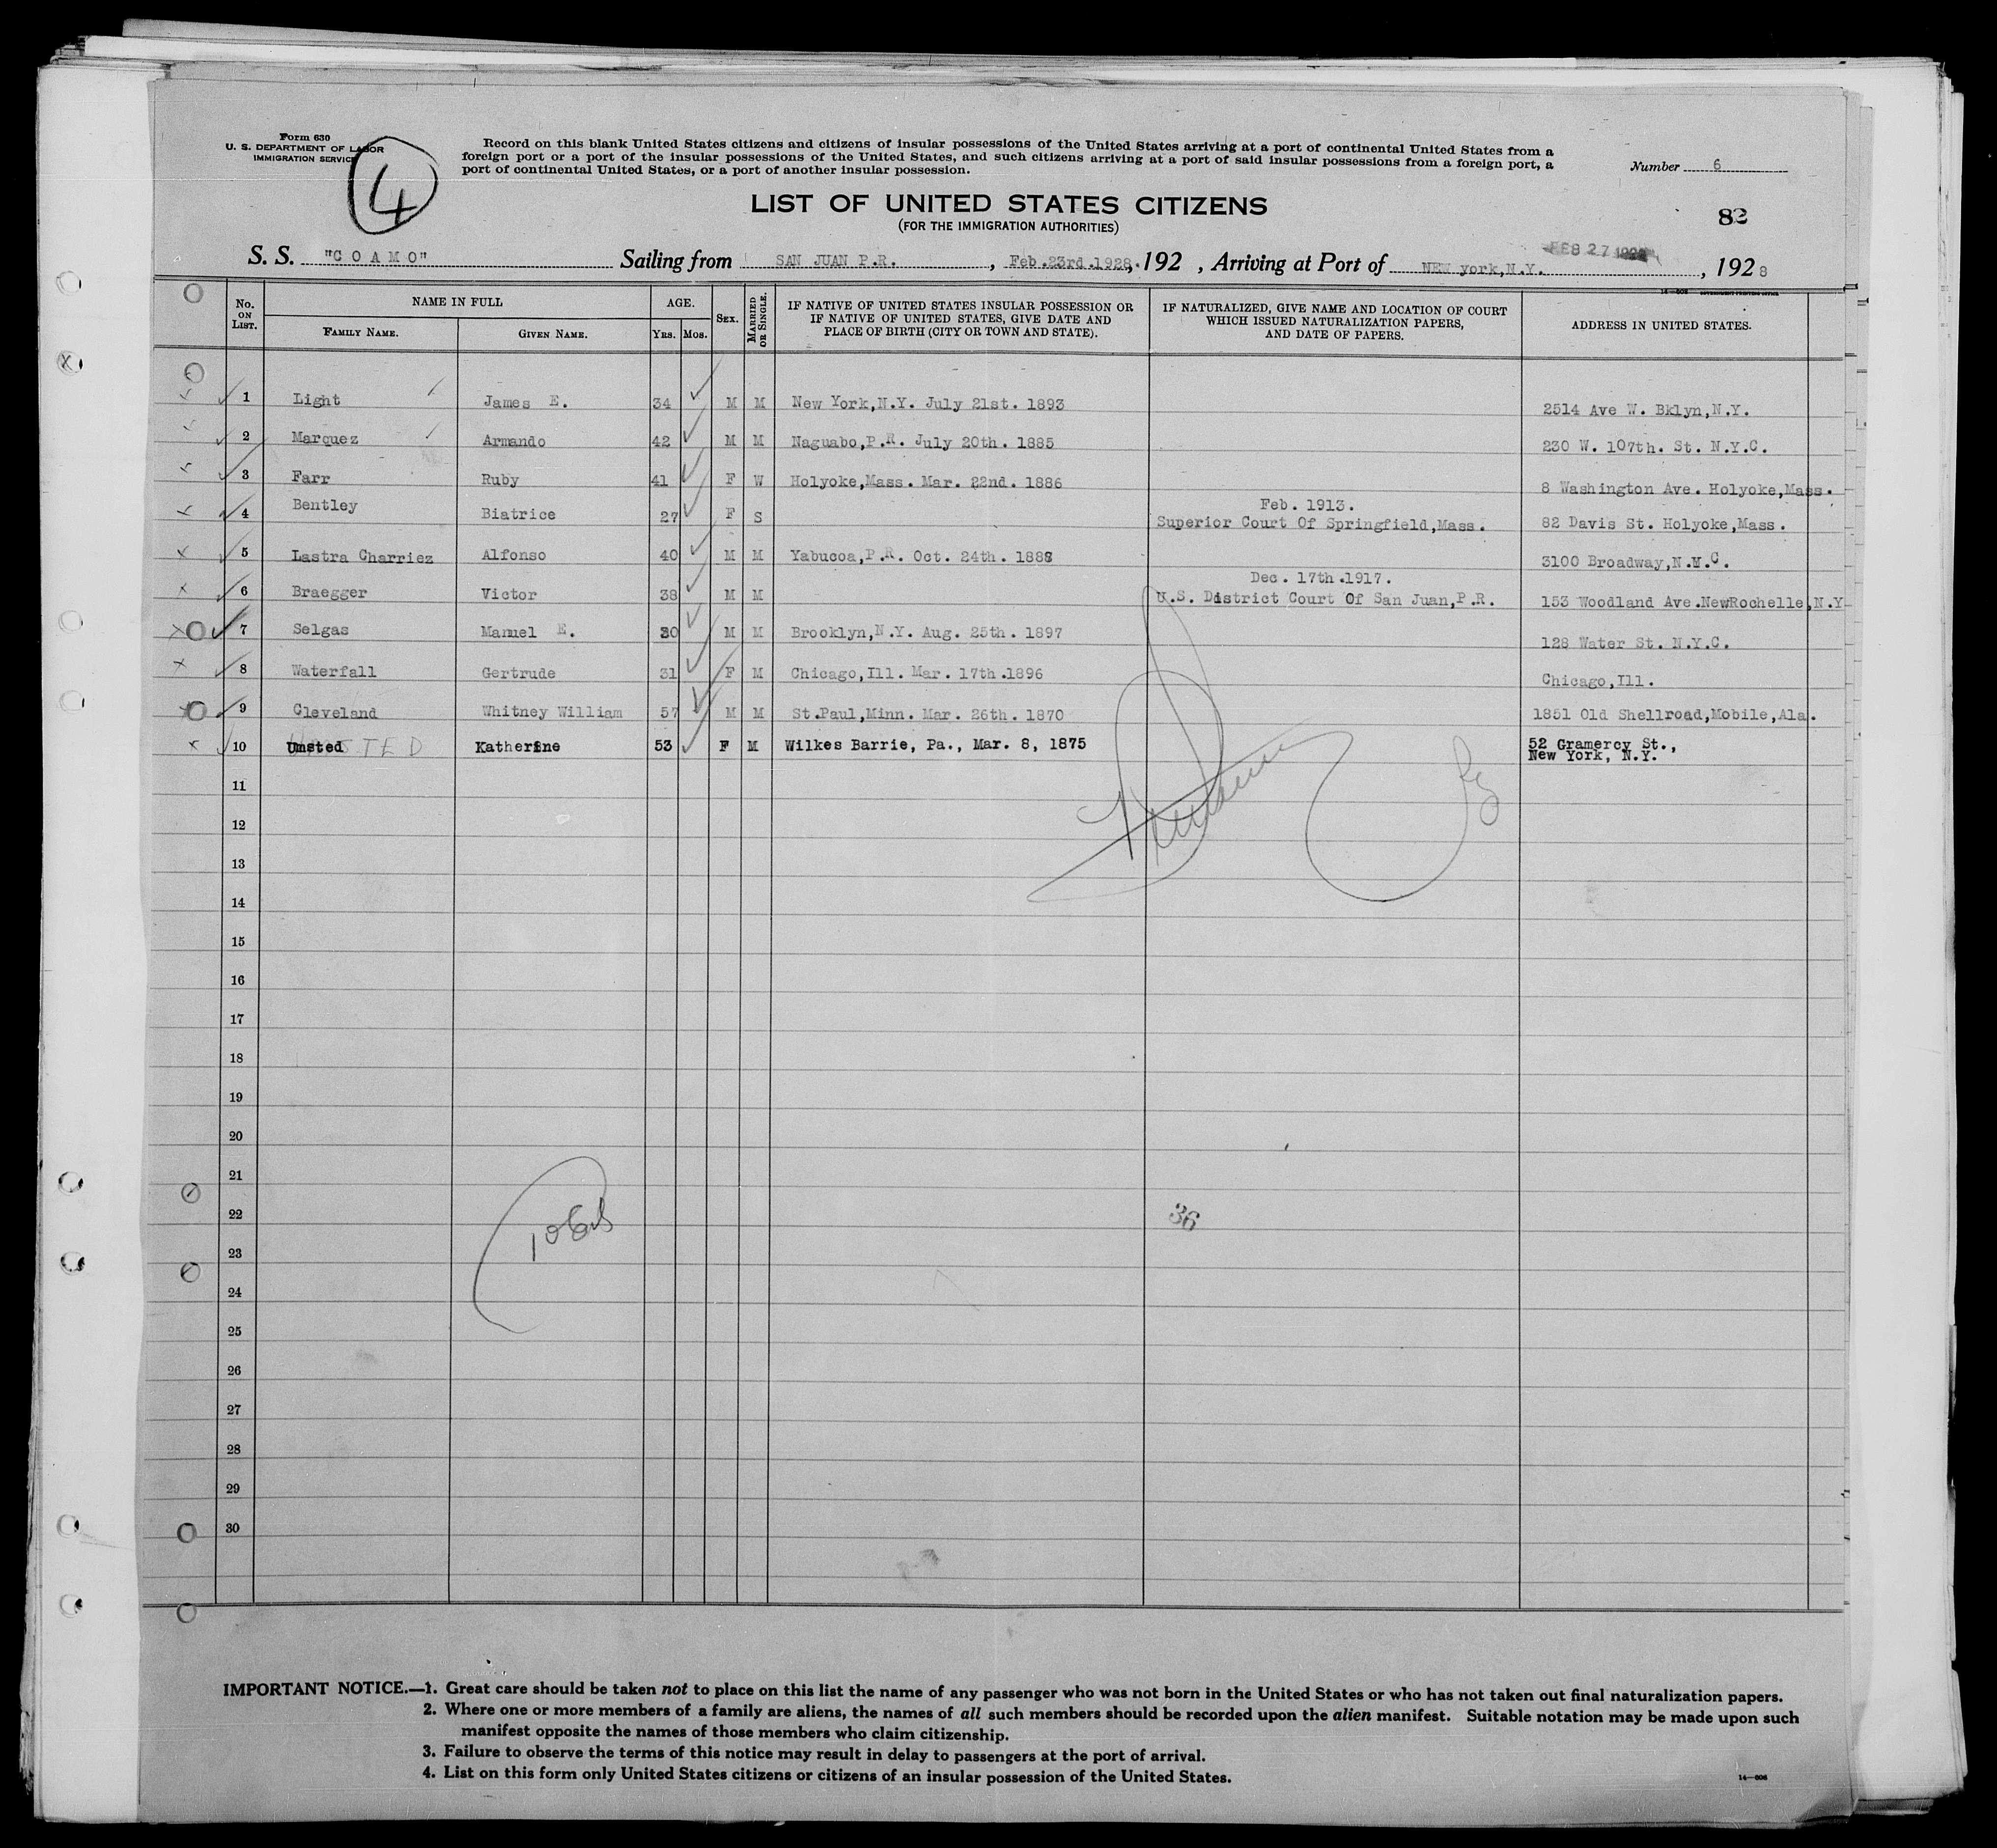 Form 630
U. S. DEPARTMENT OF LABOR
IMMIGRATION SERVICE
4
Record on this blank United States citizens and citizens of insular possessions of the United States arriving at a port of continental United States from a
foreign port or a port of the insular possessions of the United States, and such citizens arriving at a port of said insular possessions from a foreign port, a
port of continental United States, or a port of another insular possession.
Number 6
LIST OF UNITED STATES CITIZENS
(FOR THE IMMIGRATION AUTHORITIES)
82
S. S. "COAMO" Sailing from SAN JUAN P.R. , Feb.23rd.1928. , 192 , Arriving at Port of NEW york,N.Y. FEB 27 1928 , 1928
No. ON LIST. NAME IN FULL AGE. SEX. MARRIED OR SINGLE. IF NATIVE OF UNITED STATES INSULAR POSSESSION OR IF NATIVE OF UNITED STATES, GIVE DATE AND PLACE OF BIRTH (CITY OR TOWN AND STATE). IF NATURALIZED, GIVE NAME AND LOCATION OF COURT WHICH ISSUED NATURALIZATION PAPERS, AND DATE OF PAPERS. ADDRESS IN UNITED STATES.
FAMILY NAME. GIVEN NAME. YRS. MOS.
1 Light James E. 34 M M New York,N.Y. July 21st. 1893 2514 Ave W. Bklyn,N.Y.
2 Marquez Armando 42 M M Naguabo,P.R. July 20th. 1885 230 W. 107th. St. N.Y.C.
3 Farr Ruby 41 F W Holyoke,Mass. Mar. 22nd. 1886 8 Washington Ave. Holyoke,Mass.
4 Bentley Biatrice 27 F S Feb. 1913. Superior Court Of Springfield,Mass. 82 Davis St. Holyoke,Mass.
5 Lastra Charriez Alfonso 40 M M Yabucoa,P.R. Oct. 24th. 1888 3100 Broadway,N.Y.C.
6 Braegger Victor 38 M M Dec. 17th.1917. U.S. District Court Of San Juan,P.R. 153 Woodland Ave.NewRochelle,N.Y
7 Selgas Manuel E. 30 M M Brooklyn,N.Y. Aug. 25th. 1897 128 Water St. N.Y.C.
8 Waterfall Gertrude 31 F M Chicago,Ill. Mar. 17th.1896 Chicago,Ill.
9 Cleveland Whitney William 57 M M St.Paul,Minn. Mar. 26th. 1870 1851 Old Shellroad,Mobile,Ala.
10 Umsted Katherine 53 F M Wilkes Barrie, Pa., Mar. 8, 1875 52 Gramercy St., New York, N.Y.
11
12
13
14
15
16
17
18
19
20
21
22
23
24
25
26
27
28
29
30
36
IMPORTANT NOTICE.—1. Great care should be taken not to place on this list the name of any passenger who was not born in the United States or who has not taken out final naturalization papers.
2. Where one or more members of a family are aliens, the names of all such members should be recorded upon the alien manifest. Suitable notation may be made upon such
manifest opposite the names of those members who claim citizenship.
3. Failure to observe the terms of this notice may result in delay to passengers at the port of arrival.
4. List on this form only United States citizens or citizens of an insular possession of the United States.
14—606